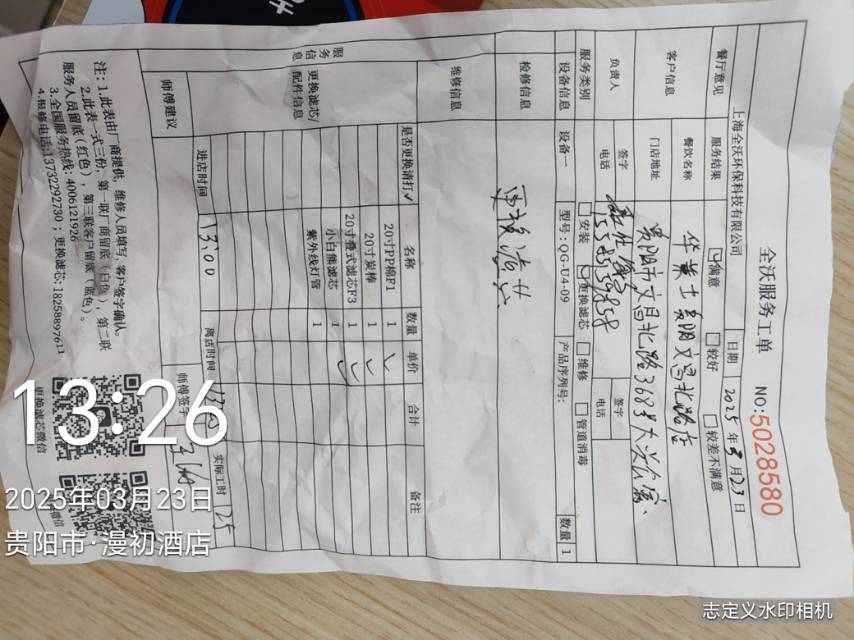 全沃服务工单 NO:5028580
上海全沃环保科技有限公司 日期 2025年3月23日
餐厅意见 服务结果 满意 较好 较差不满意
客户信息 餐饮名称 华莱士贵阳文昌北路店
门店地址 贵阳市文昌北路368号
负责人 签字 签字
电话 电话
服务类别 安装 更换滤芯 维修 管道消毒
设备信息 设备一 型号:QG-U4-09 产品序列号: 数量 1
检修信息
维修信息
服务信息
更换滤芯/配件信息 是否更换请打✓ 名称 数量 单价 合计 备注
20寸PP棉F1 1 ✓
20寸炭棒 1 ✓
20寸叠式滤芯F3 1 ✓
小白熊滤芯 1
紫外线灯管 1
师傅建议
进店时间 13:00 离店时间 实际工时
师傅签字
注:1.此表由厂商提供,维修人员填写,客户签字确认。
2.此表一式三份,第一联厂商留底(白色),第二联
服务人员留底(红色),第三联客户留底(蓝色)。
3.全国服务热线:4006121926
4.报修电话:13732292730;更换滤芯:18258897611
更换滤芯微信
微信
13:26
2025年03月23日
贵阳市·漫初酒店
志定义水印相机